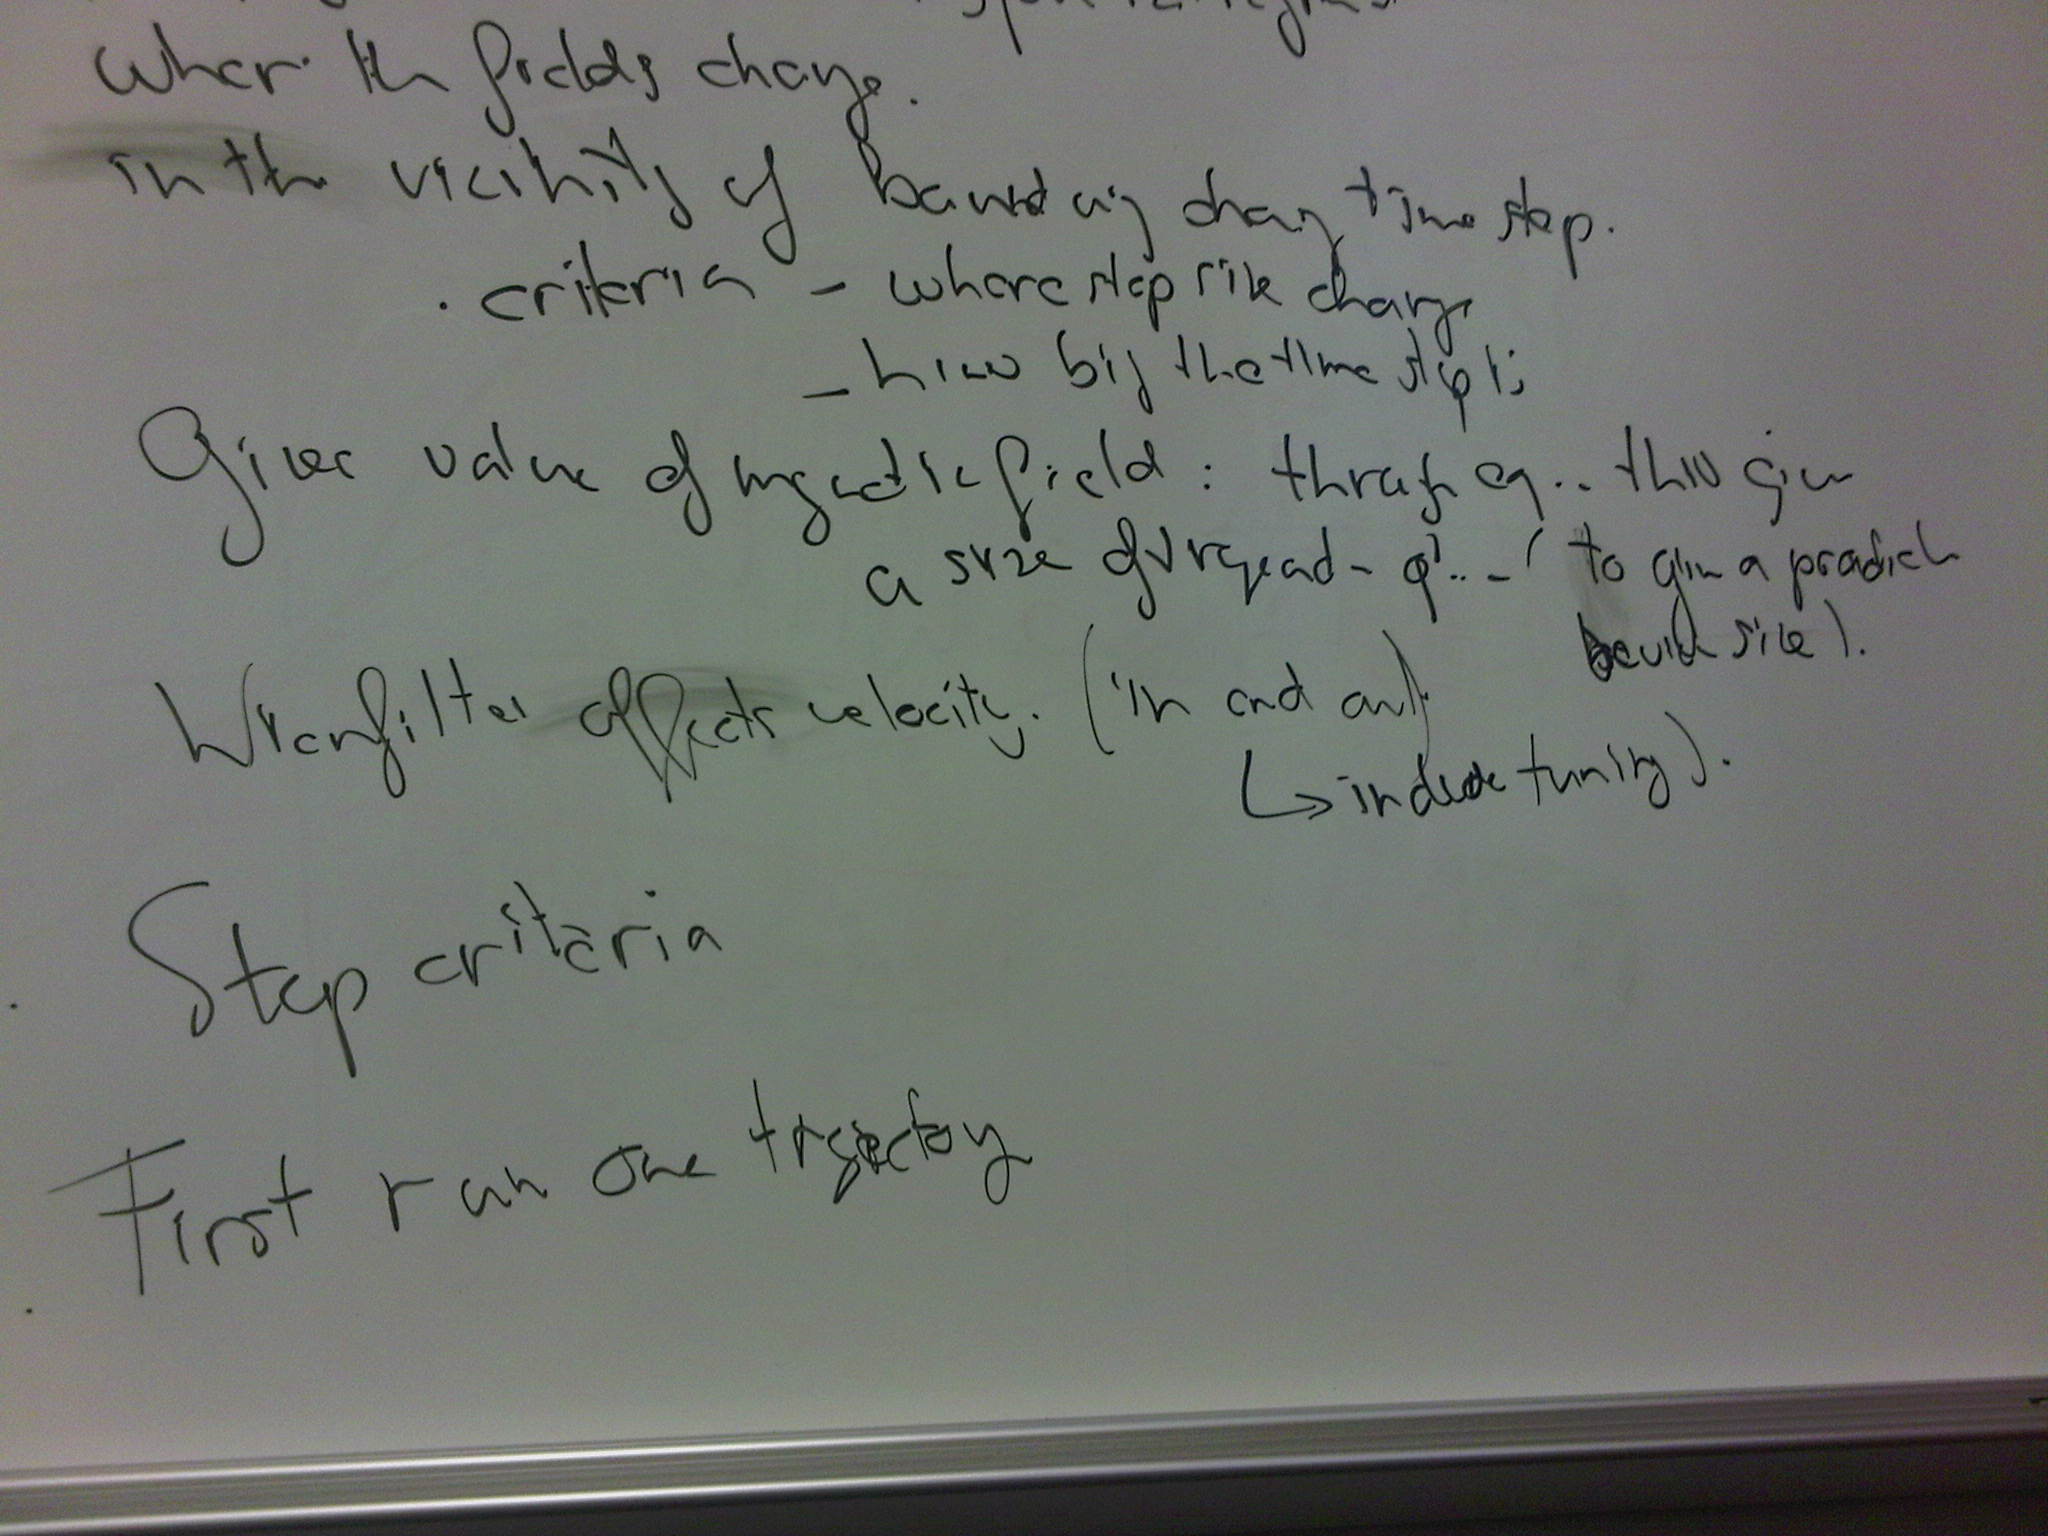 Wher the fields change.
in the vicinity of boundary chang time step.
. criteria - where step size change
- how big the time step is
Given value of magnetic field : through eq... this give
a size of to give a
size).
Wienfilter affects velocity. (in and out)
↳ include tuning).
Step criteria
First run one trajectory